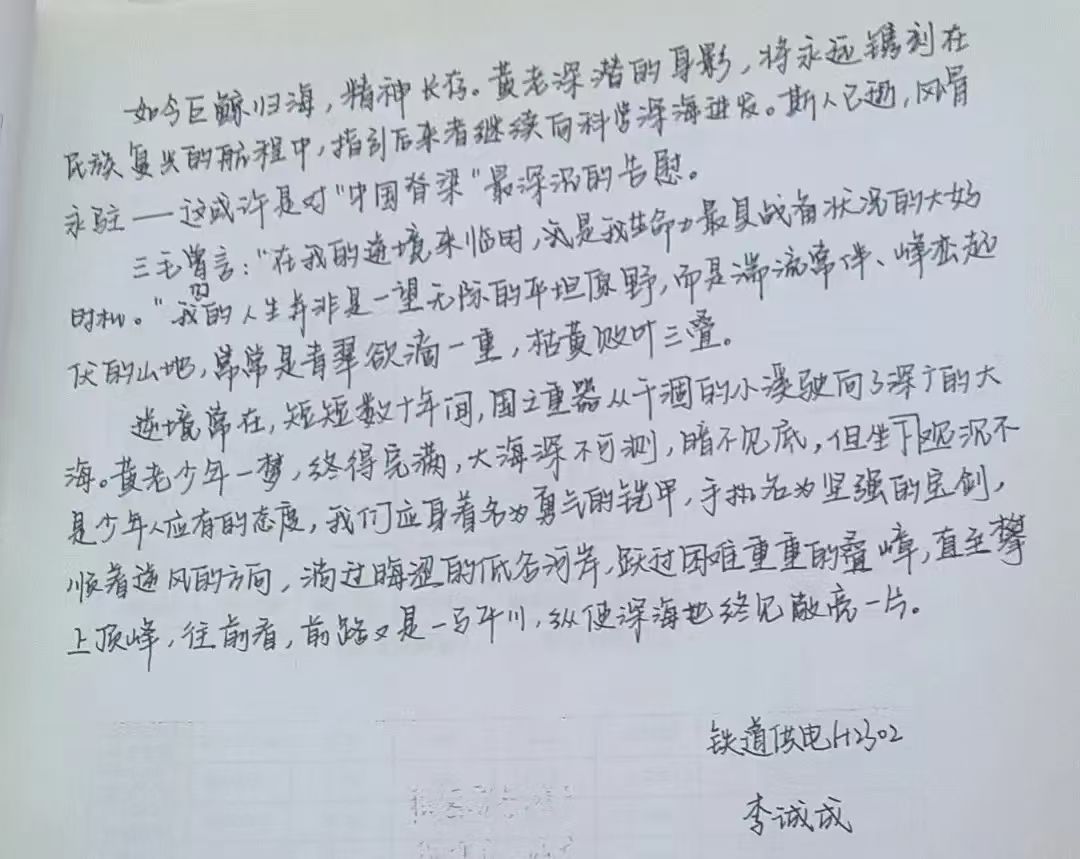 如今巨鲸归海，精神长存。黄老深潜的身影，将永远镌刻在
民族复兴的航程中，指引后来者继续向科学深海进发。斯人已逝，风骨
永驻——这或许是对"中国脊梁"最深沉的告慰。
三毛曾言："在我的逆境来临时，就是我生命力最具战备状况的大好
时机。"我们的人生并非是一望无际的平坦原野，而是湍流常伴、峰峦起
伏的山地，常常是青翠欲滴一重，枯黄败叶三叠。
逆境常在，短短数十年间，国之重器从干涸的小溪驶向了深广的大
海。黄老少年一梦，终得完满，大海深不可测，暗不见底，但坐下观沉不
是少年人应有的态度，我们应身着名为勇气的铠甲，手执名为坚强的宝剑，
顺着逆风的方向，淌过晦涩的低谷河岸，跃过困难重重的叠嶂，直至攀
上顶峰，往前看，前路又是一马平川，纵使深海也终见敞亮一片。
铁道供电H2302
李诚成